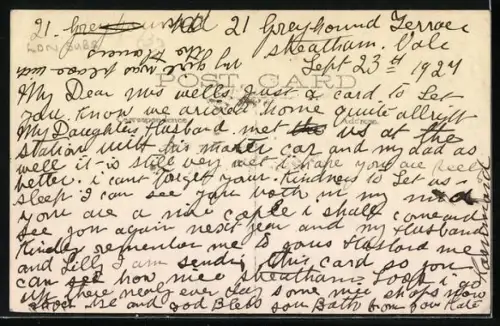 21 Greyhound Terrace
Streatham. Vale
LDN SUBB
my girl was please with
the flowers
Sept 23rd 1927
POST CARD
Correspondence
Address
My Dear Mrs wells. Just a card to Let
you know we arived home quite allright
My Daughters Husband. met us at the
station with his moter car and my dad as
well it is still very wet i hope you are feels
better. i cant forget your Kindness to Let us
sleep I can see you both in my mind
you are a nice cople i shall come and
see you again next year and my Husband
Kindly remember me to yours Husband me
and Lilly I am sending this card so you
can see how nice streatham Look i go
up there nearly ever day some nice shops now
and God Bless you Bath from your Kate